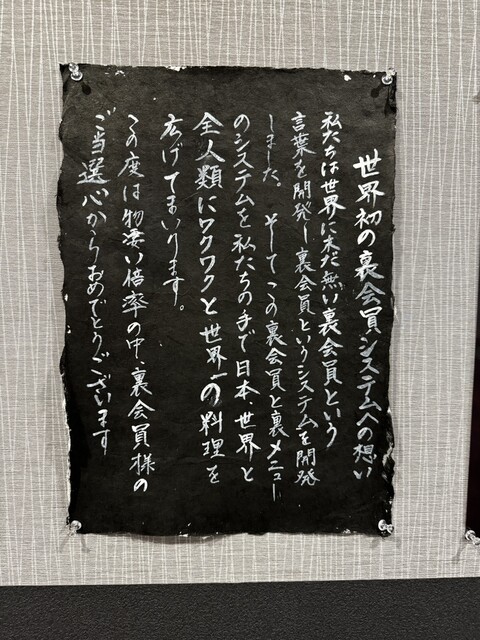 世界初の裏会員システムへの想い
私たちは世界に未だ無い裏会員という
言葉を開発し裏会員というシステムを開発
しました。そしてこの裏会員と裏メニュー
のシステムを私たちの手で日本 世界と
全人類にワクワクと世界一の料理を
広げてまいります。
この度は物凄い倍率の中、裏会員様の
ご当選心からおめでとうございます